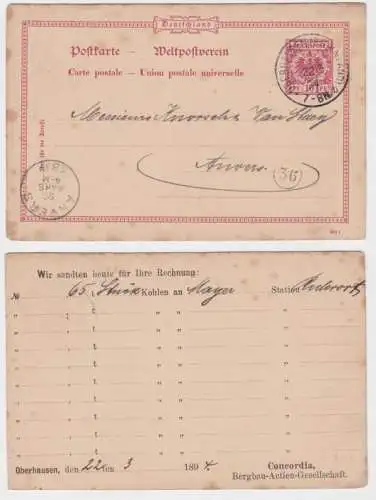 Deutschland
Postkarte — Weltpostverein
Carte postale — Union postale universelle
Messieurs Knorsch & Van
Anvers
36
ANVERS
Wir sandten heute für Ihre Rechnung:
№ 65 t. Stück Kohlen an Mayer Station
" " t. " "
" " t. " "
" " t. " "
" " t. " "
" " t. " "
" " t. " "
" " t. " "
" " t. " "
Oberhausen, den 22ten 3 1894 Concordia,
Bergbau-Actien-Gesellschaft.